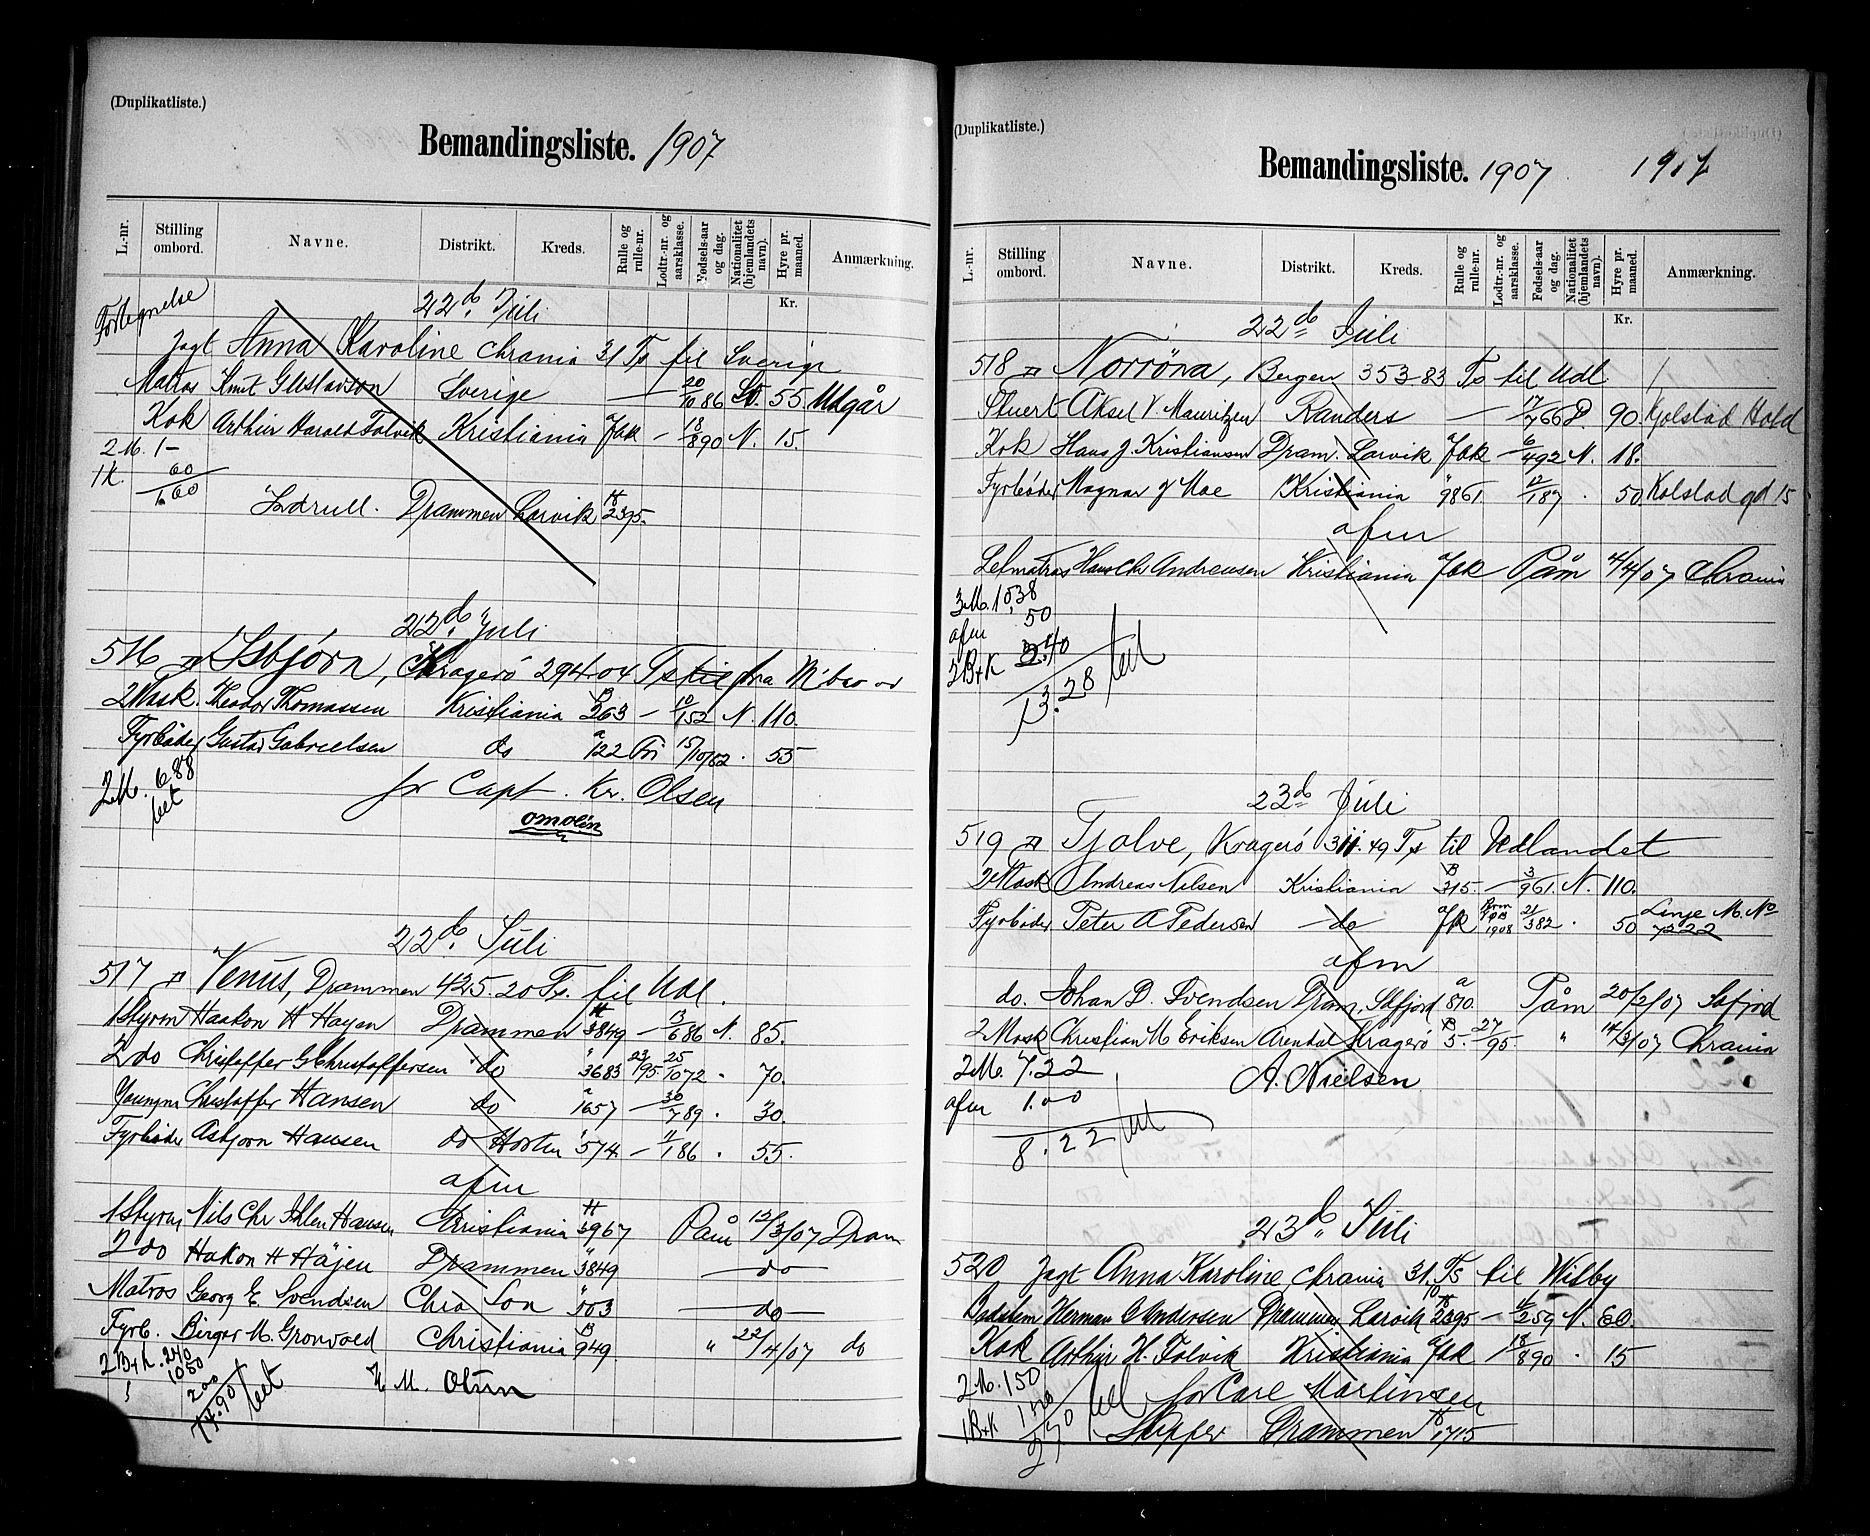 (Duplikatliste.)
Bemandingsliste. 1907
L.-nr. Stilling ombord. Navne. Distrikt. Kreds. Rulle og rulle-nr. Lodtr.-nr. og aarsklasse. Fødsels-aar og dag. Nationalitet (hjemlandets navn). Hyre pr. maaned. Anmærkning.
Kr.
Fortegnelse
22d Juli
Jagt Anna Karoline Chrania 31 Ts til Sverige
Matros Knut Gustavson Sverige — 20/10 86 Sv. 55 Udgår
Kok Arthur Harald Folvik Kristiania Jbk — 18/8 90 N. 15.
2 M. 1-
1 K. 60
1.60
Drammen Larvik H 2395.
22d Juli
516 Isbjørn, Kragerø 294.04 Ts fra
2 Mask. Theodor Thomassen Kristiania B 263 — 10/1 52 N. 110.
Fyrbøder Gustav Gabrielsen do a 122 Fri 15/10/82 . 55
2 M. 6.88
bet
for Capt. Kr. Olsen
omolin
22d Juli
517 Venus, Drammen 425.20 Ts. til Udl.
1 Styrm Haakon H Høyen Drammen H 3849 — 13/6 86 N. 85.
2 do Christoffer G Christoffersen do " 3683 22/95 25/10 72 . 70.
Youngm Christoffer Hansen do a 1657 — 30/7 89 . 30.
Fyrbøder Asbjørn Hansen do Horten " 574 — 11/1 86 . 55.
afm
1 Styrm Nils Chr Ihlen Hansen Christiania H 3967 Påm 12/3/07 Dram
2 do Hakon H Højen Drammen " 3849 — do —
Matros Georg E Svendsen Chra Son " 503 — do —
Fyrb. Birger M. Grønvold Christiania B 949 " 22/4/07 do
2 B+K. 240
1050
200
14.90 bet
M. Olsen
(Duplikatliste.)
Bemandingsliste. 1907 1907
L.-nr. Stilling ombord. Navne. Distrikt. Kreds. Rulle og rulle-nr. Lodtr.-nr. og aarsklasse. Fødsels-aar og dag. Nationalitet (hjemlandets navn). Hyre pr. maaned. Anmærkning.
Kr.
22d Juli
518 Norrøna, Bergen 353.83 Ts til Udl
Stuert Aksel V. Mauritzen Randers — 17/7 66 D. 90.
Kok Hans J. Kristiansen Dram. Larvik Jbk — 6/4 92 N. 18.
Fyrbøder Magnar J Moe Kristiania " 9861 12/1 87 . 50.
afm
Letmatros Hans Chr Andreassen Kristiania Jbk Påm 4/4/07 Chrania
3 M. 10.38
afm 50
2 B+K 2.40
13.28 bet
23d Juli
519 Tjalve, Kragerø 311.49 Ts til Udlandet
2 Mask Andreas Nilsen Kristiania B 315. — 3/9 61. N. 110.
Fyrbøder Peter A Pedersen do Jbk 1908 21/3 82 . 50 Linje M. No 7222
afm
do. Johan D. Svendsen Dram. Sbfjord a 870. Påm 20/2/07 Sbfjord
2 Mask Christian M Eriksen Arendal Kragerø B 5. 27/95. " 14/3/07 Chrania
2 M. 7.22
afm 1.00
8.22 bet
A. Nielsen
23d Juli
520 Jagt Anna Karoline Chrania 31. Ts til Wisby
Bedstem Herman C Andersen Drammen Larvik H 2395 — 11/2 59 N. 60.
Kok Arthur H. Folvik Kristiania Jbk 18/8 90 . 15
2 M. 150
1 B+K 120
2.70 bet
for Carl Martinsen
Skipper Drammen H 1715